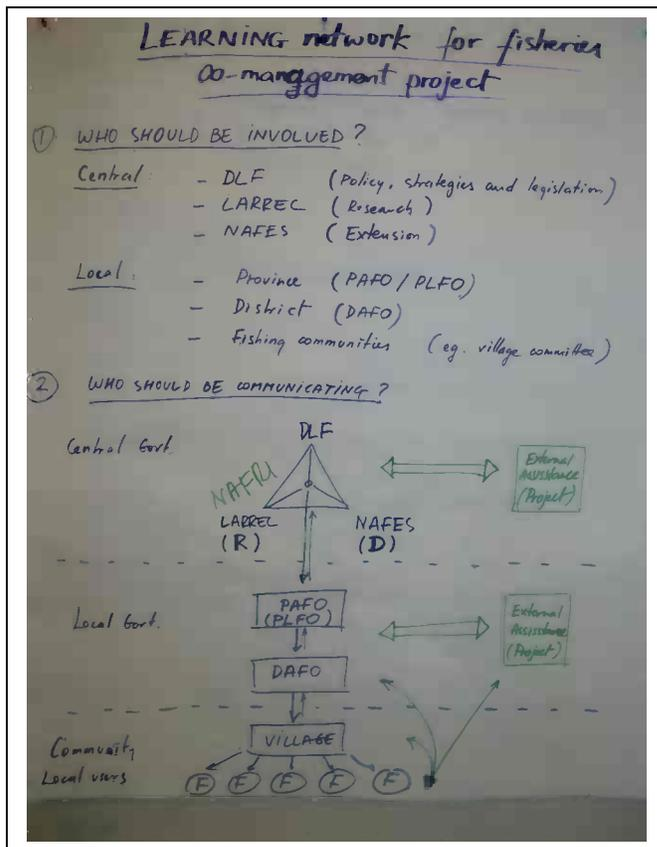 LEARNING network for fisheries
co-management project
① WHO SHOULD BE INVOLVED?
Central: - DLF (Policy, strategies and legislation)
- LARREC (Research)
- NAFES (Extension)
Local: - Province (PAFO / PLFO)
- District (DAFO)
- Fishing communities (eg. village committee)
② WHO SHOULD BE COMMUNICATING?
DLF
Central Govt.
NAFRI
External
Assistance
(Project)
LARREL NAFES
(R) (D)
PAFO
(PLFO)
Local Govt.
External
Assistance
(Project)
DAFO
VILLAGE
Community
Local users
F F F F F